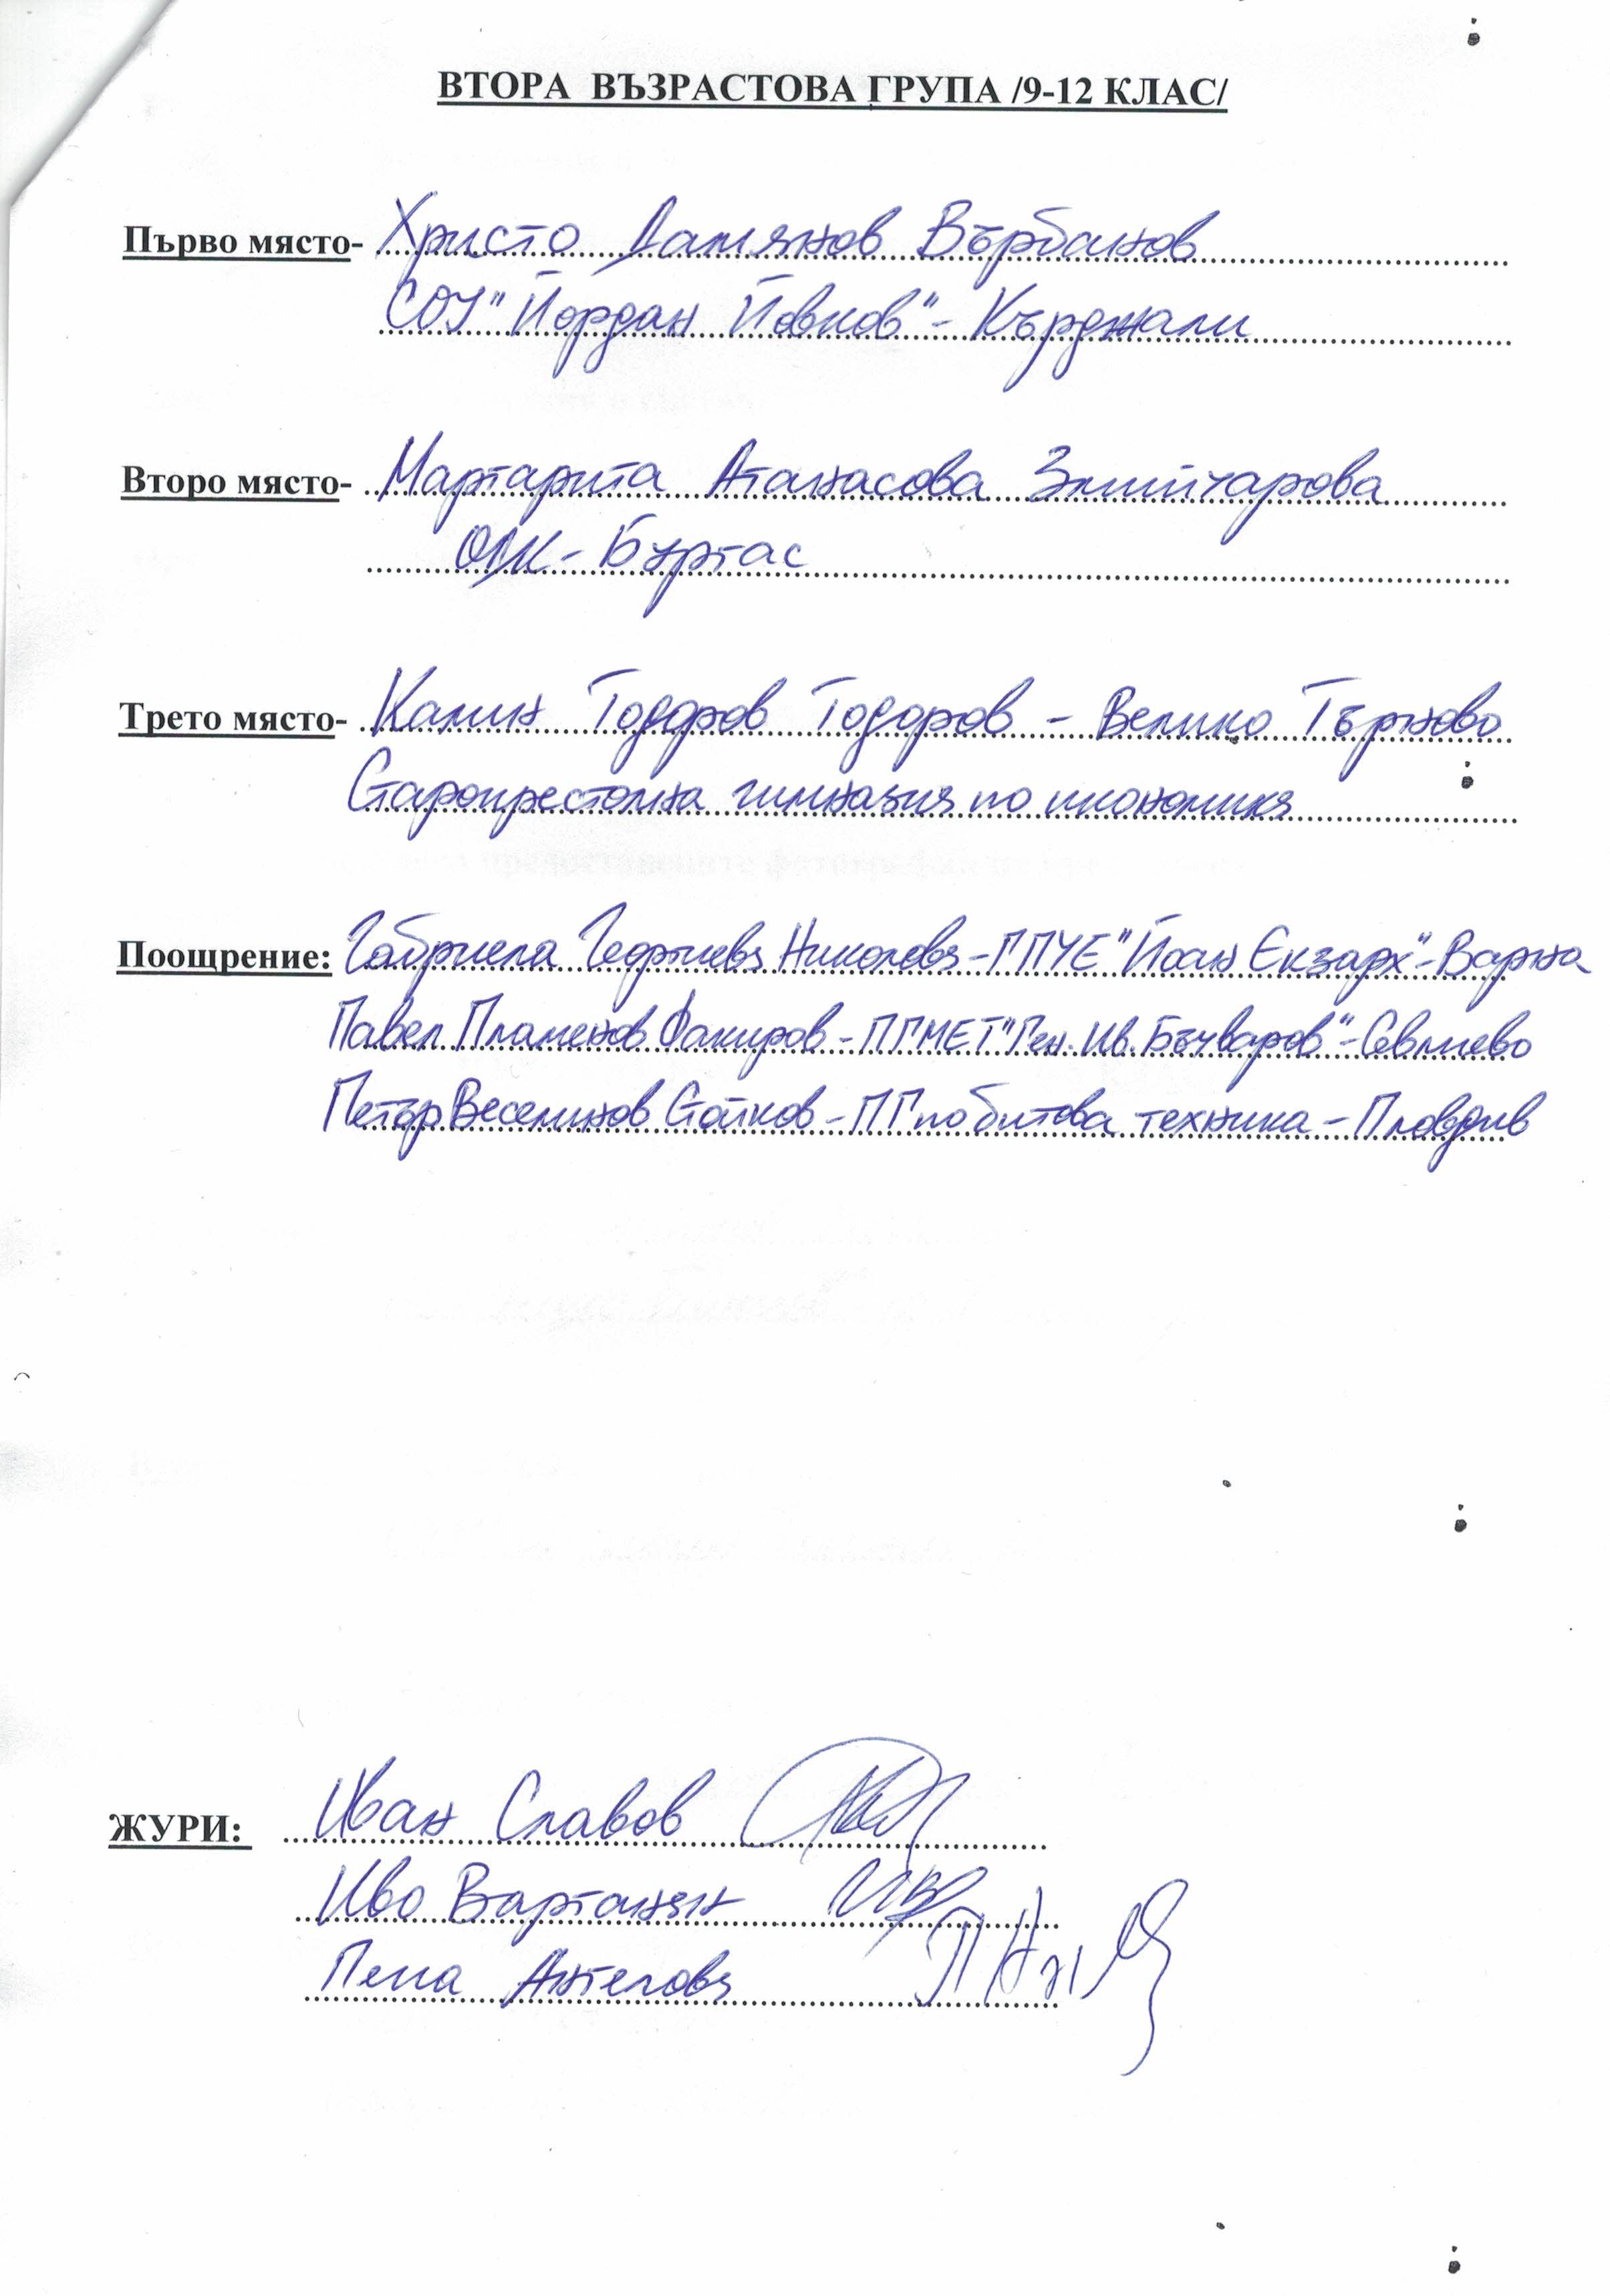 ВТОРА ВЪЗРАСТОВА ГРУПА /9-12 КЛАС/
Първо място- Христо Дамянов Върбанов
СОУ "Йордан Йовков" - Кърджали
Второ място- Маргарита Атанасова Змийчарова
ОМК - Бургас
Трето място- Калин Тодоров Тодоров - Велико Търново
Старопрестолна гимназия по икономика
Поощрение: Габриела Георгиева Николова - ГПЧЕ "Йоан Екзарх" - Варна
Павел Пламенов Факиров - ПГМЕТ "Ген. Ив. Бъчваров" - Севлиево
Петър Веселинов Стойков - ПГ по битова техника - Пловдив
ЖУРИ: Иван Славов
Иво Вартанян
Пепа Ангелова